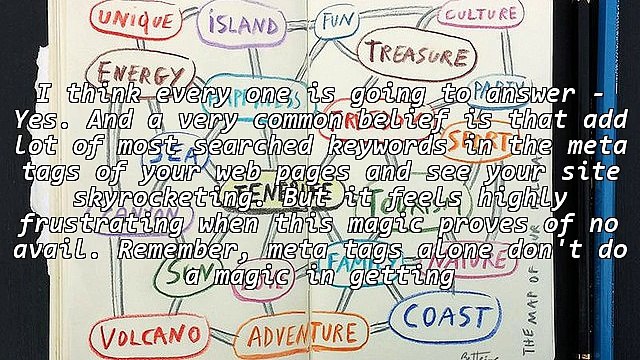 UNIQUE
ISLAND
FUN
CULTURE
TREASURE
ENERGY
HAPPINESS
PARTY
I think every one is going to answer -
Yes. And a very common belief is that add
lot of most searched keywords in the meta
tags of your web pages and see your site
skyrocketing. But it feels highly
frustrating when this magic proves of no
avail. Remember, meta tags alone don't do
a magic in getting
SPORT
SEA
TENERIFE
TOURISM
CANYON
SUN
FAMILY
NATURE
COAST
VOLCANO
ADVENTURE
THE MAP OF